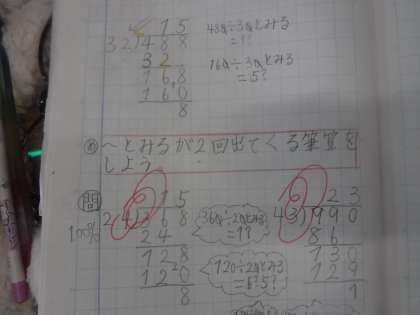 15
32)488
32
168
160
8
480÷30とみる
=1?
160÷30とみる
=5?
め ~とみるが2回出てくる筆算を
しよう
問
15
24)368
24
128
120
8
100%
360÷20とみる
=1?
120÷20とみる
=6?5?
23
43)990
86
130
129
1